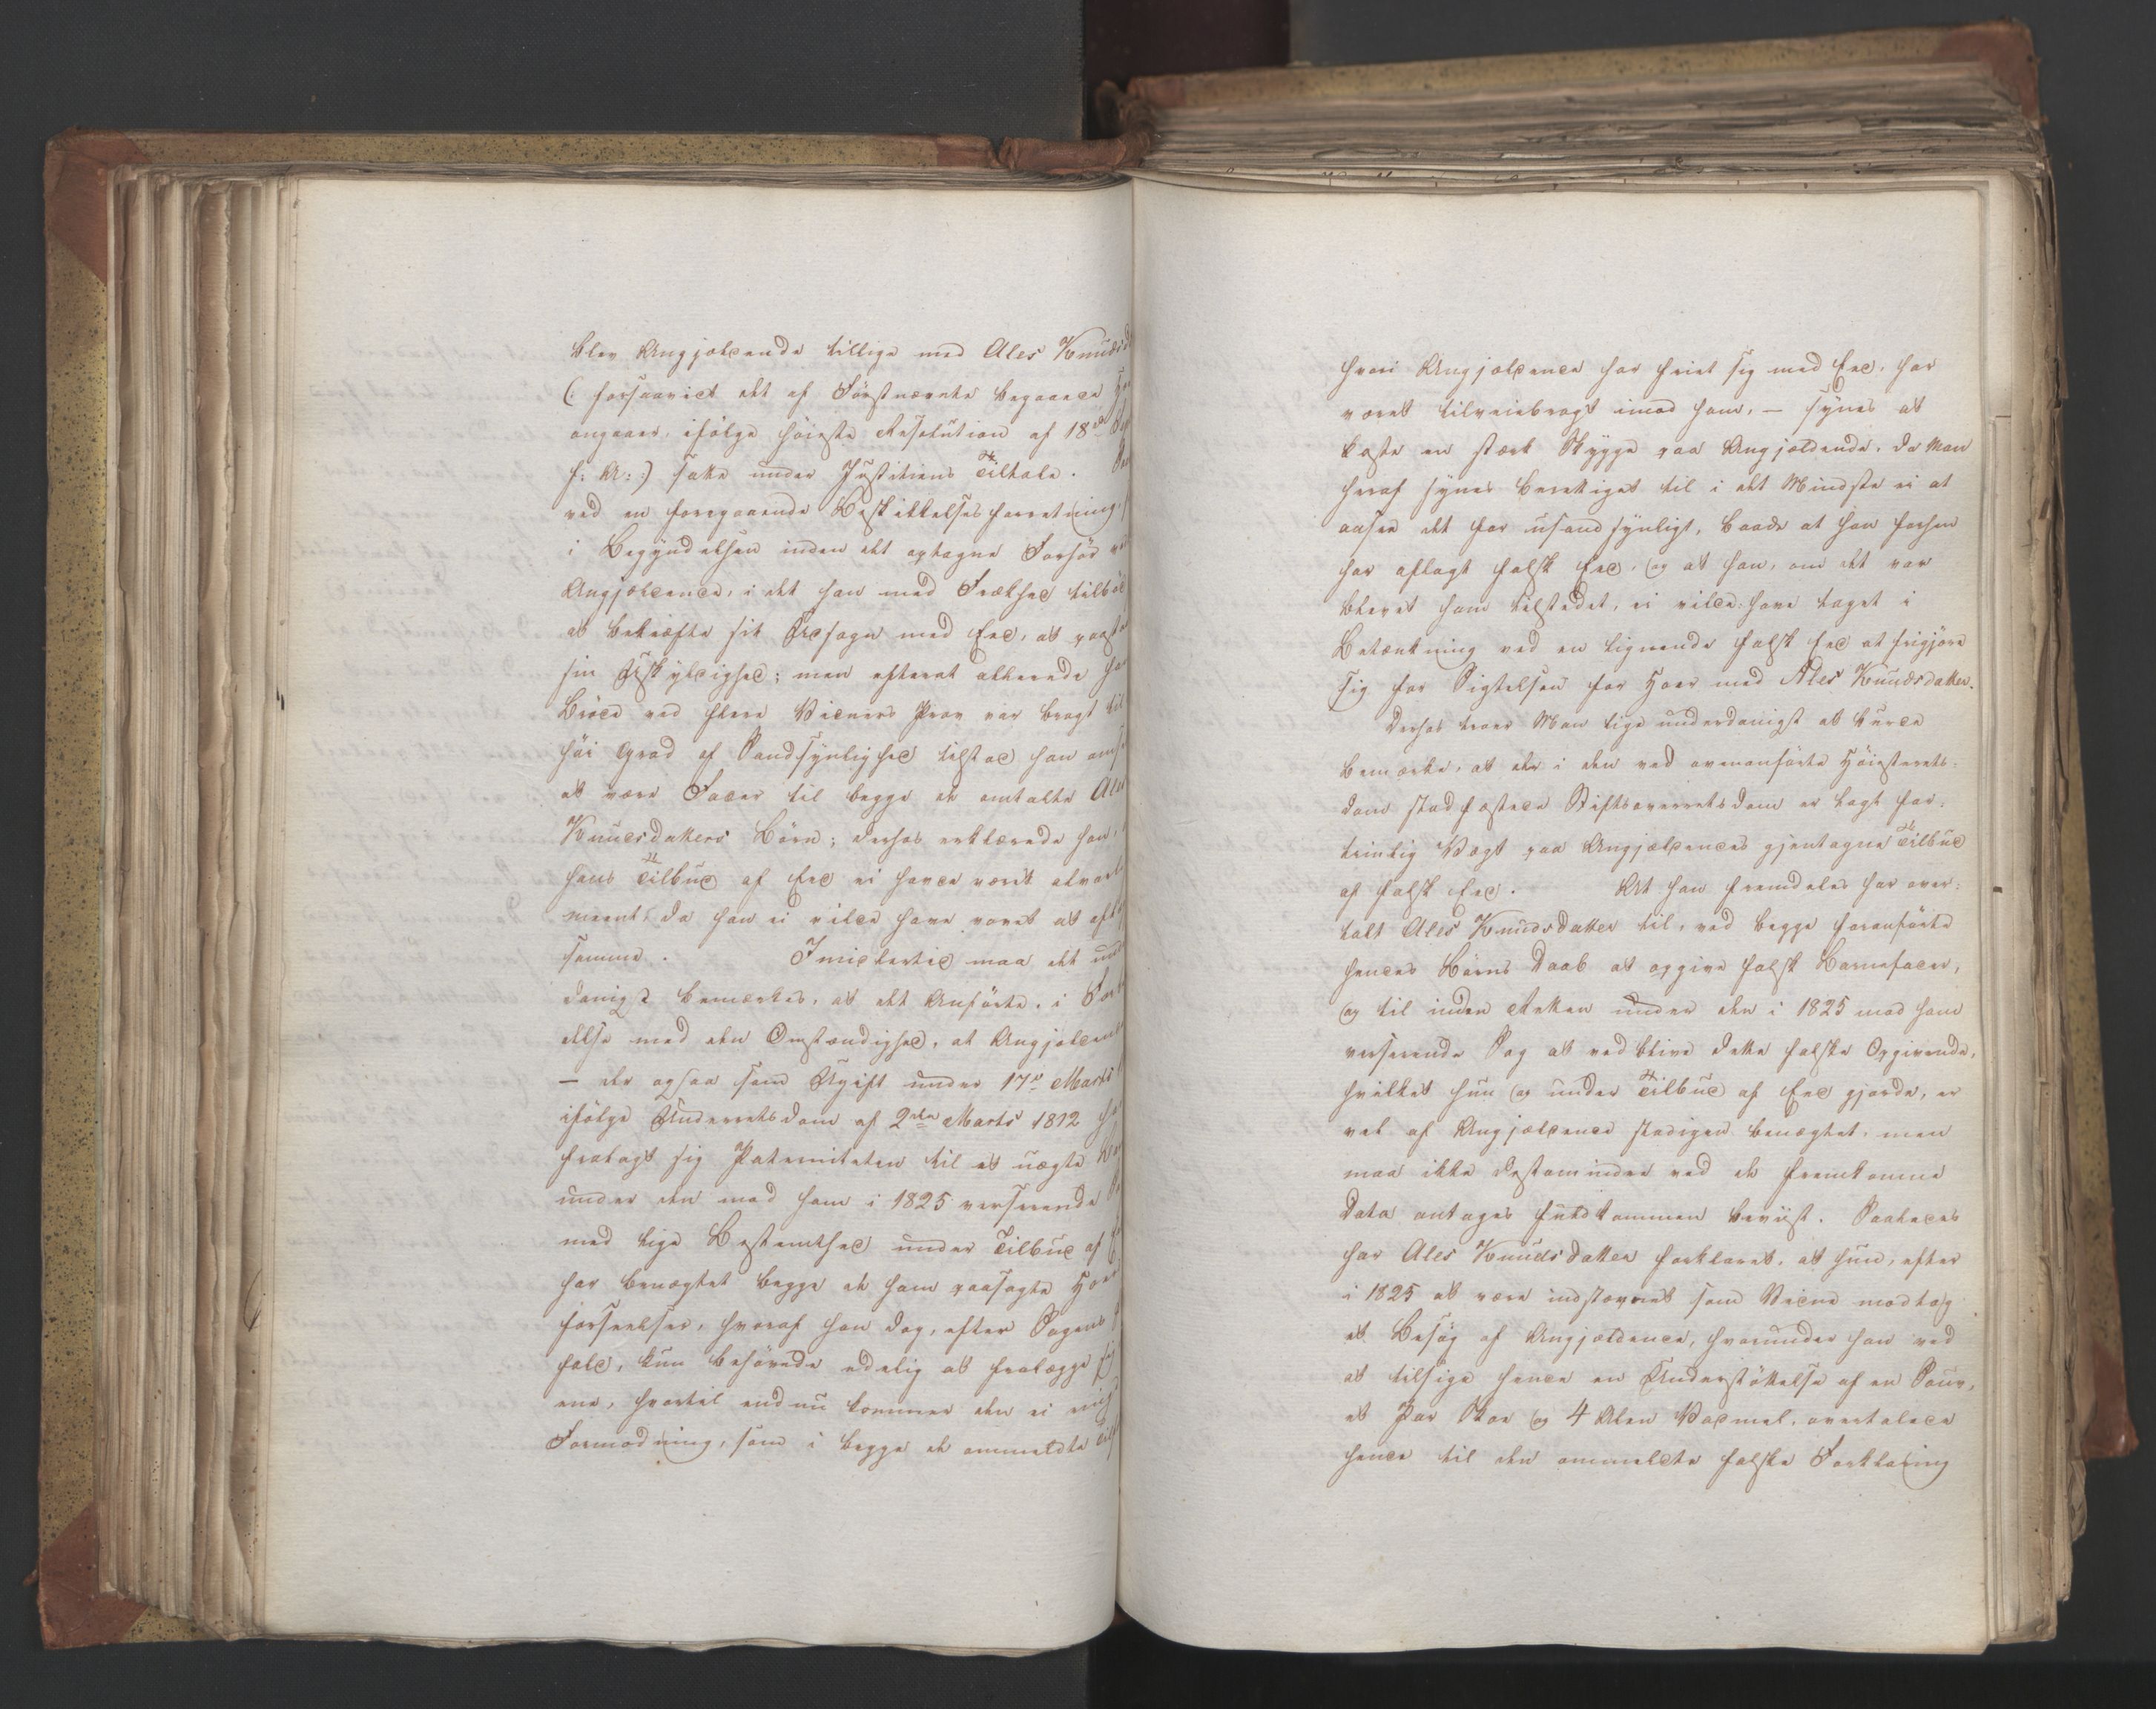 blev Angjældende tillige med Ales Knudsd
(: forsaavidt det af Förstnævnte begaaede
angaaer, ifølge höieste Resolution af 18de
f: A::) satte under Justitiens Tiltale.
ved en foregaaende Beskikkelsesforretning,
i Begyndelsen inden det optagne Forhör
Angjældende, i det han med Frækhed tilböd
at bekræfte sit Udsagn med Eed, at paastaae
sin Uskyldighed; men efterat allerede
Bröde ved flere Vidners Prov var bragt til
höi Grad af Sandsynlighed tilstod han
at være Fader til begge de omtalte Ales
Knudsdatters Börn; derhos erklærede han,
hans Tilbud af Eed ei havde været alvorligt
meent, da han ei vilde have vovet at aflægge
samme. Imidlertid maa det under
danigst bemærkes, at det Anförte, i Forbin
delse med den Omstændighed, at Angjældende
— der ogsaa som Ugift under 17de Marts
ifølge Underretsdom af 2den Marts 1812
fralagt sig Paterniteten til et uægte
under den mod ham i 1825 verserende
med lige Bestemthed under Tilbud af
har benægtet begge de ham paasagte Hoer
forseelser, hvoraf han dog, efter Sagens
fald, kun behövede edelig at fralægge sig
ene, hvortil endnu kommer den ei
Formodning, som i begge de ommeldte
hvori Angjældende har friet sig med Eed, har
været tilveiebragt imod ham, — synes at
kaste en stærk Skygge paa Angjældende, da Man
heraf synes berettiget til i det Mindste ei at
ansee det for usandsynligt, baade at han forhen
har aflagt falsk Eed, og at han, om det var
blevet ham tilstedet, ei vilde have taget i
Betænkning ved en lignende falsk Eed at frigjöre
sig for Sigtelsen for Hoer med Ales Knudsdatter.
Derhos troer Man lige underdanigst at burde
bemærke, at der i den ved ovenanförte Höiesterets-
dom stadfæstede Stiftsoverretsdom er lagt for-
trinlig Vægt paa Angjældendes gjentagne Tilbud
af falsk Eed. At han fremdeles har over-
talt Ales Knudsdatter til, ved begge foranförte
hendes Börns Daab at opgive falsk Barnefader,
og til inden Retten under den i 1825 mod ham
verserende Sag at vedblive dette falske Opgivende,
hvilket hun og under Tilbud af Eed gjorde, er
vel af Angjældende stadigen benægtet, men
maa ikke destomindre ved de fremkomne
Data antages fuldkommen beviist. Saaledes
har Ales Knudsdatter forklaret, at hun, efter
i 1825 at være indstævnet som Vidne modtog
et Besög af Angjældende, hvorunder han ved
at tilsige hende en Understöttelse af en Sau,
et Par Skoe og 4 Alen Vadmel, overtalede
hende til den ommeldte falske Forklaring